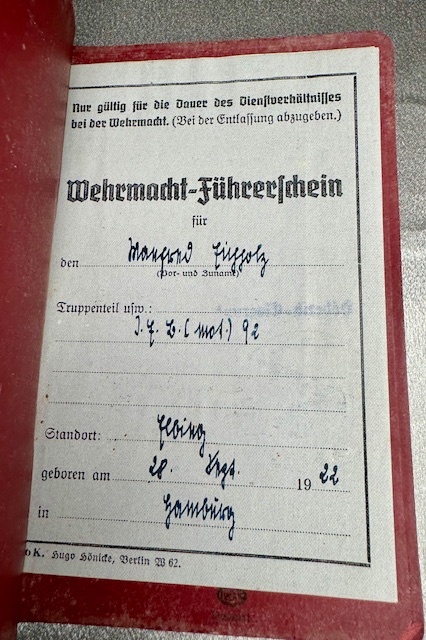 Nur gültig für die Dauer des Dienstverhältnisses
bei der Wehrmacht. (Bei der Entlassung abzugeben.)
Wehrmacht-Führerschein
für
den Manfred Eichholz
(Vor- und Zuname)
Truppenteil usw.:
J. E. B. (mot.) 92
Standort: Elbing
geboren am 28. Sept. 19 22
in Hamburg
K. Hugo Hönicke, Berlin W 62.